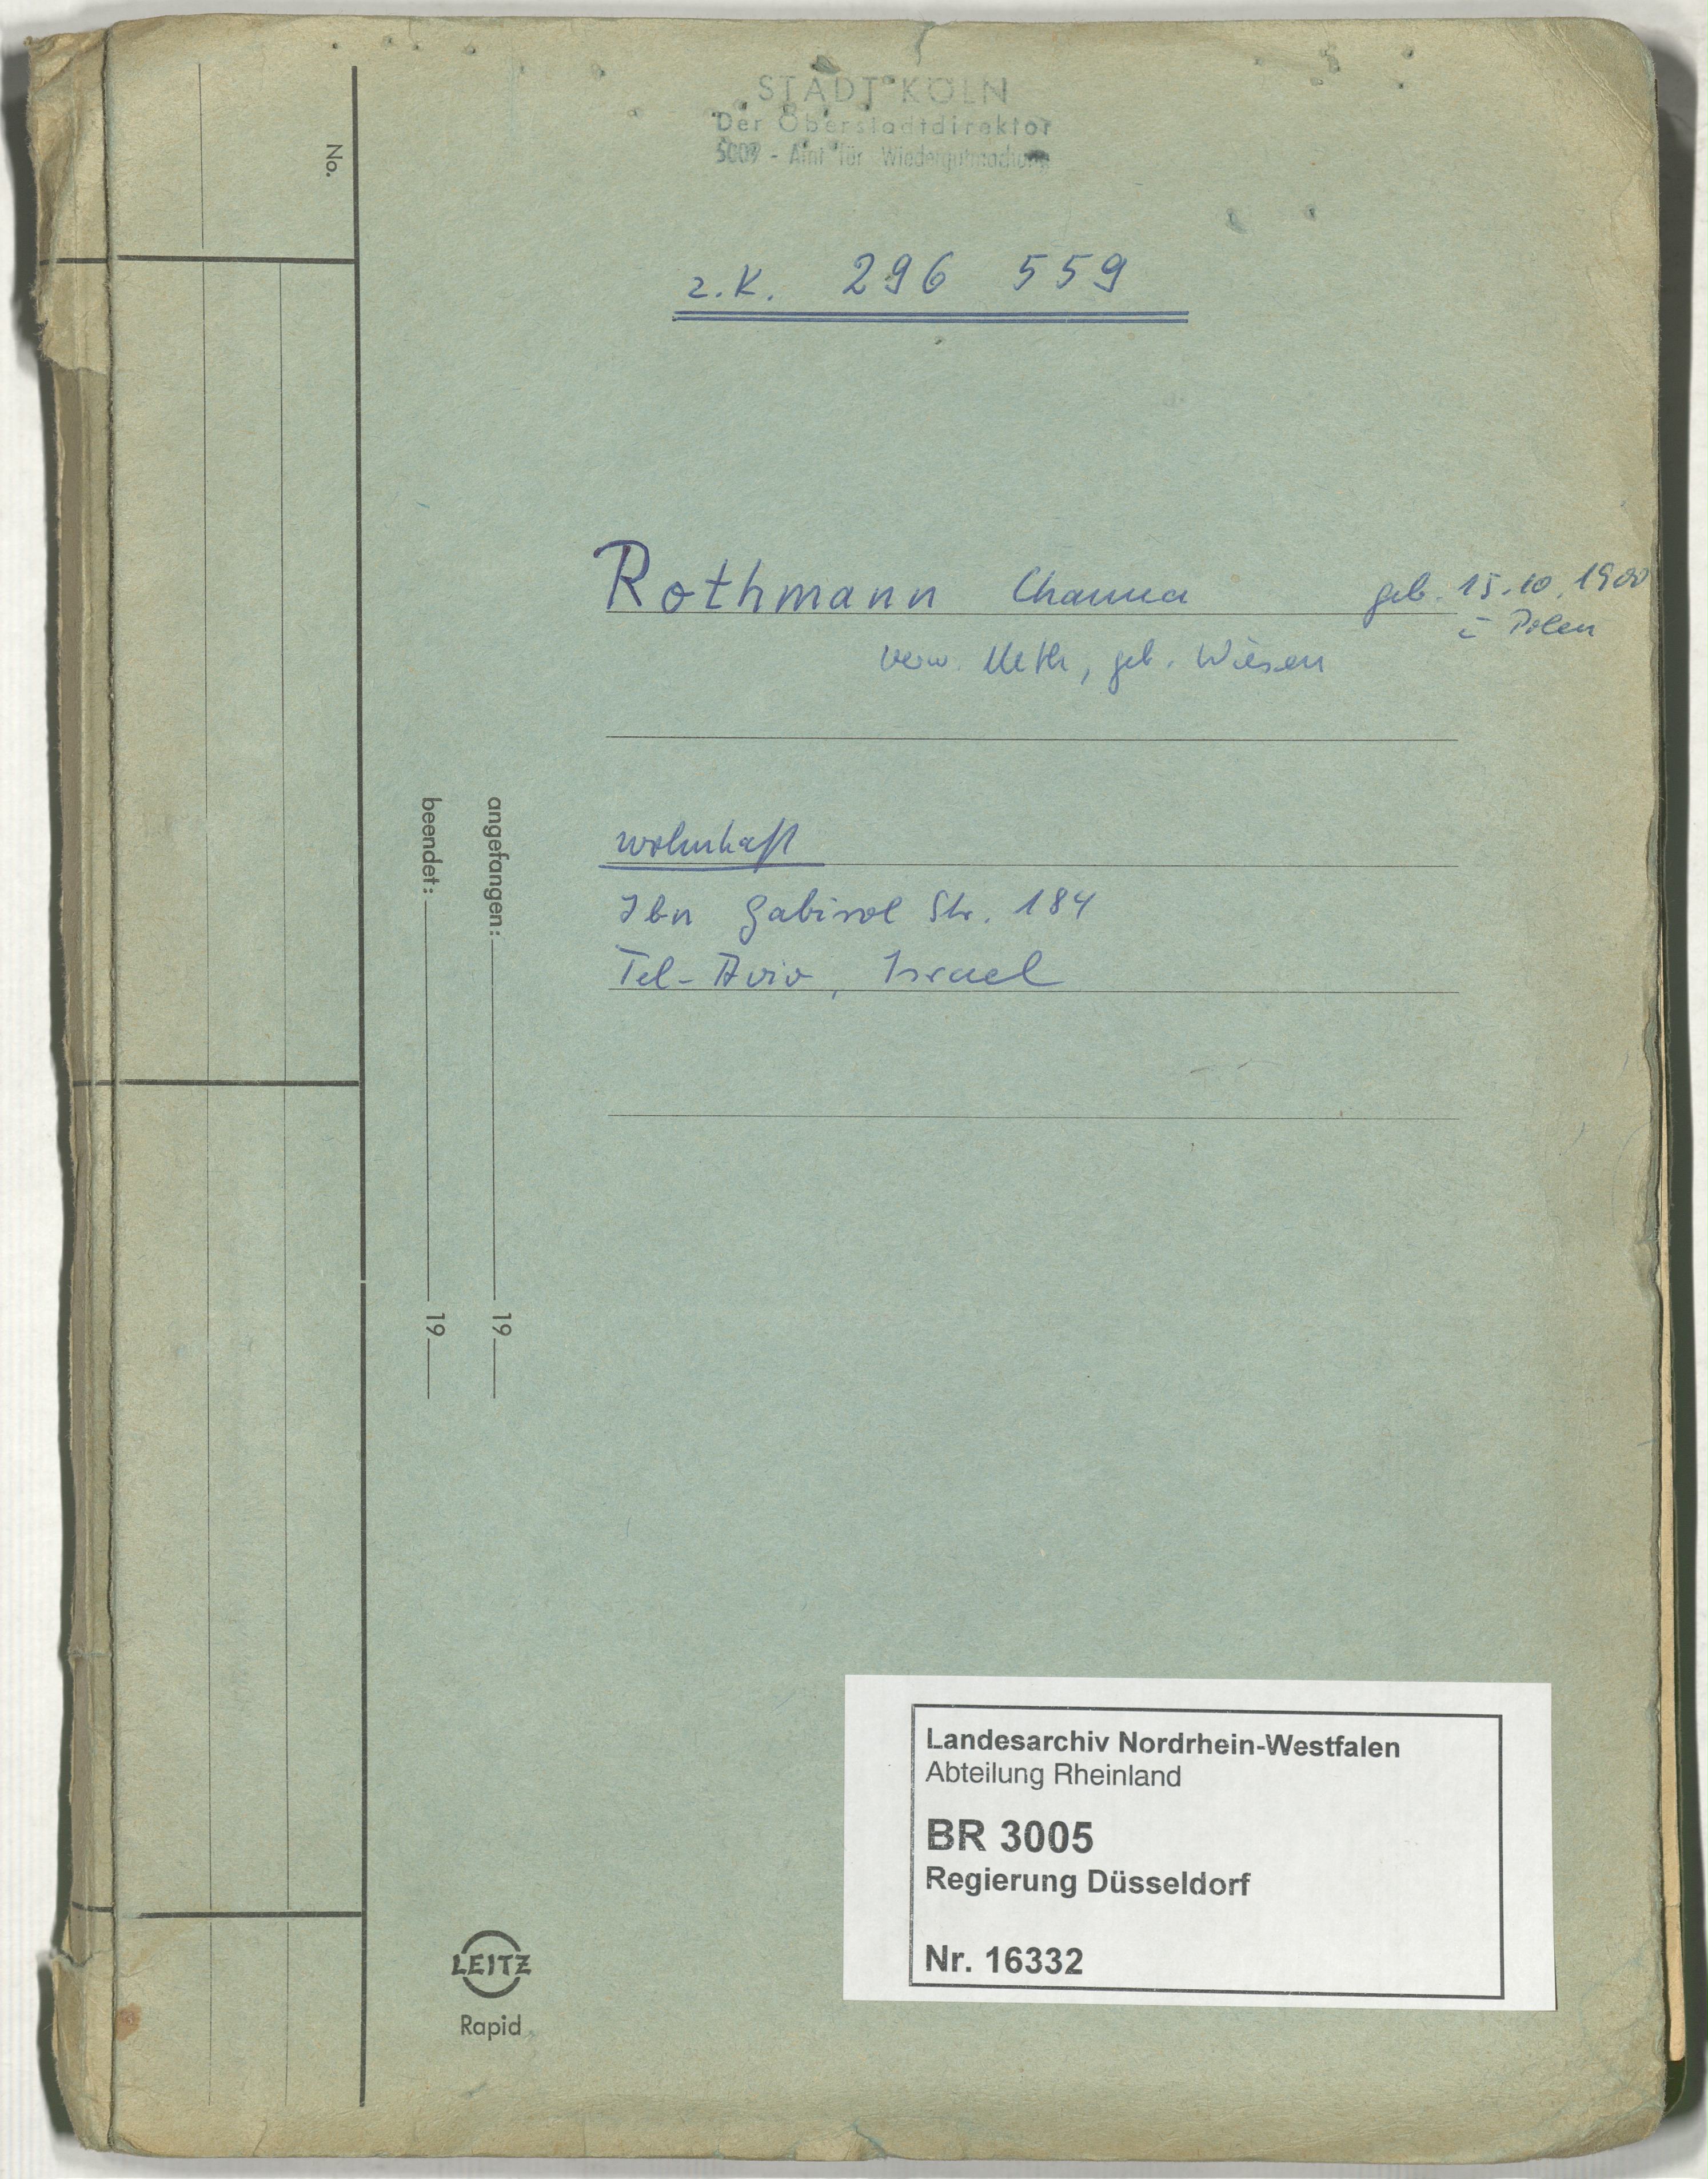 STADT KÖLN
Der Oberstadtdirektor
5009 - Amt für Wiedergutmachung
z.K. 296 559
No.
Rothmann Channa geb. 15.10.1900
i Polen
verw. Meth, geb. Wiesen
wohnhaft
Ibn Gabirol Str. 184
Tel-Aviv, Israel
angefangen: 19
beendet: 19
LEITZ
Rapid
Landesarchiv Nordrhein-Westfalen
Abteilung Rheinland
BR 3005
Regierung Düsseldorf
Nr. 16332